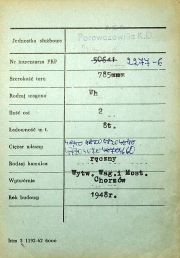 Jednostka służbowa
Nr inwentarza PKP 50641 2277-6
Szerokość toru 785mm
Rodzaj wagonu Wh
Ilość osi 2
Ładowność w t. 8t.
Ciężar własny
Rodzaj hamulca ręczny
Wytwórnia Wytw. Wag. i Most. Chorzów
Rok budowy 1948r.